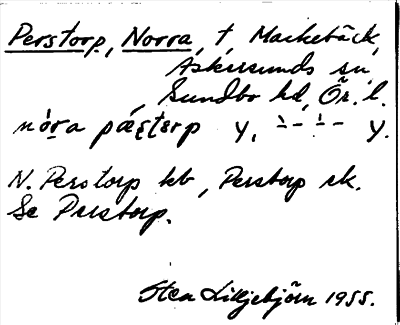 Perstorp, Norra, t Markebäck,
Askersunds sn,
Sundbo hd, Ör. l.
nó̱ra pæʂtərp y, ∸ - ∸ - y.
N. Perstorp kb, Perstorp ek.
Se Perstorp.
Sten Lilljebjörn 1955.